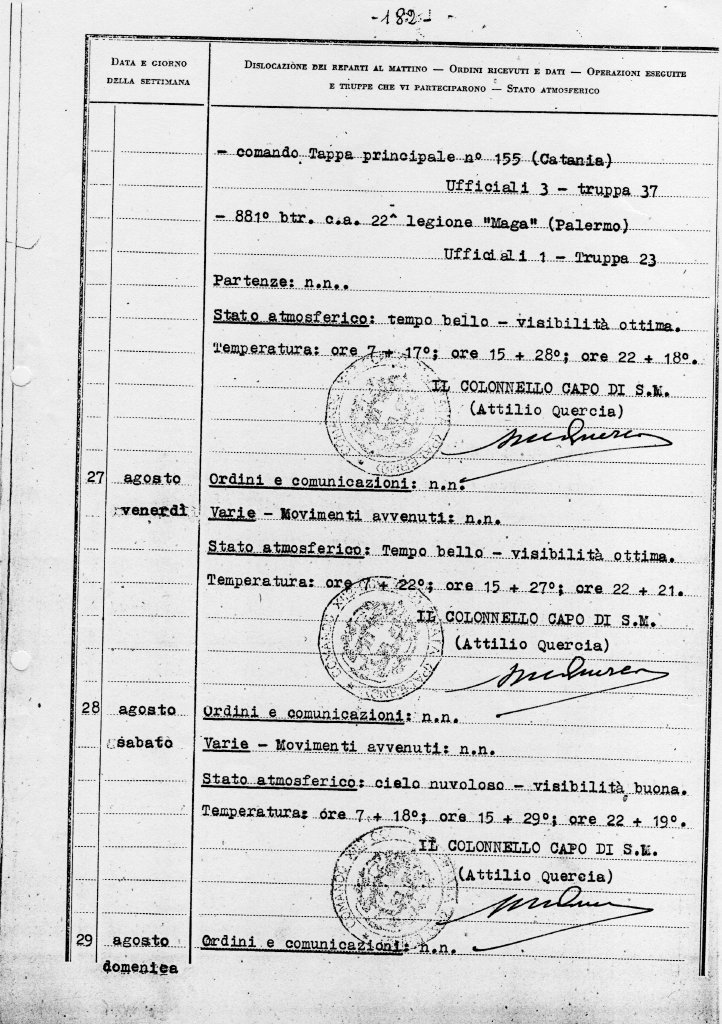 -182-
DATA E GIORNO
DELLA SETTIMANA
DISLOCAZIONE DEI REPARTI AL MATTINO — ORDINI RICEVUTI E DATI — OPERAZIONI ESEGUITE
E TRUPPE CHE VI PARTECIPARONO — STATO ATMOSFERICO
- comando Tappa principale n° 155 (Catania)
Ufficiali 3 - truppa 37
- 881° btr. c.a. 22^ legione "Maga" (Palermo)
Ufficiali 1 - Truppa 23
Partenze: n.n..
Stato atmosferico: tempo bello - visibilità ottima.
Temperatura: ore 7 + 17°; ore 15 + 28°; ore 22 + 18°.
IL COLONNELLO CAPO DI S.M.
(Attilio Quercia)
27 agosto Ordini e comunicazioni: n.n.
venerdì Varie - Movimenti avvenuti: n.n.
Stato atmosferico: Tempo bello - visibilità ottima.
Temperatura: ore 7 + 22°; ore 15 + 27°; ore 22 + 21.
IL COLONNELLO CAPO DI S.M.
(Attilio Quercia)
28 agosto Ordini e comunicazioni: n.n.
sabato Varie - Movimenti avvenuti: n.n.
Stato atmosferico: cielo nuvoloso - visibilità buona.
Temperatura: ore 7 + 18°; ore 15 + 29°; ore 22 + 19°.
IL COLONNELLO CAPO DI S.M.
(Attilio Quercia)
29 agosto Ordini e comunicazioni: n.n.
domenica